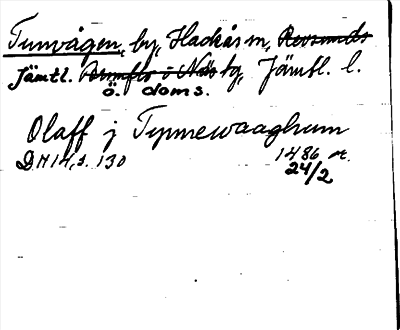 Tunvågen, by, Hackås sn, Revsunds
Jämtl. tg, Jämtl. l.
ö. doms.
Olaff j Tynnewaaghum
DN 14, s. 130 1486 or.
24/2